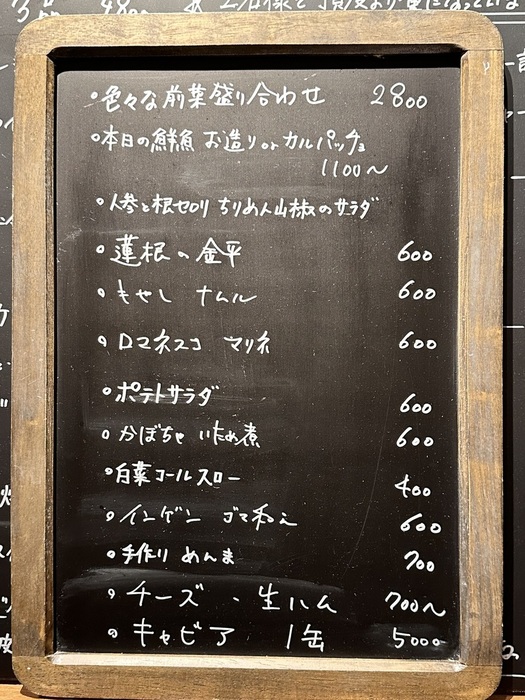 ・色々な前菜盛り合わせ 2800
・本日の鮮魚 お造り or カルパッチョ
1100〜
・人参と根セロリ ちりめん山椒のサラダ
・蓮根の金平 600
・もやし ナムル 600
・ロマネスコ マリネ 600
・ポテトサラダ 600
・かぼちゃ いため煮 600
・白菜コールスロー 400
・インゲン ゴマ和え 600
・手作り めんま 700
・チーズ ・ 生ハム 700〜
・キャビア 1缶 5000